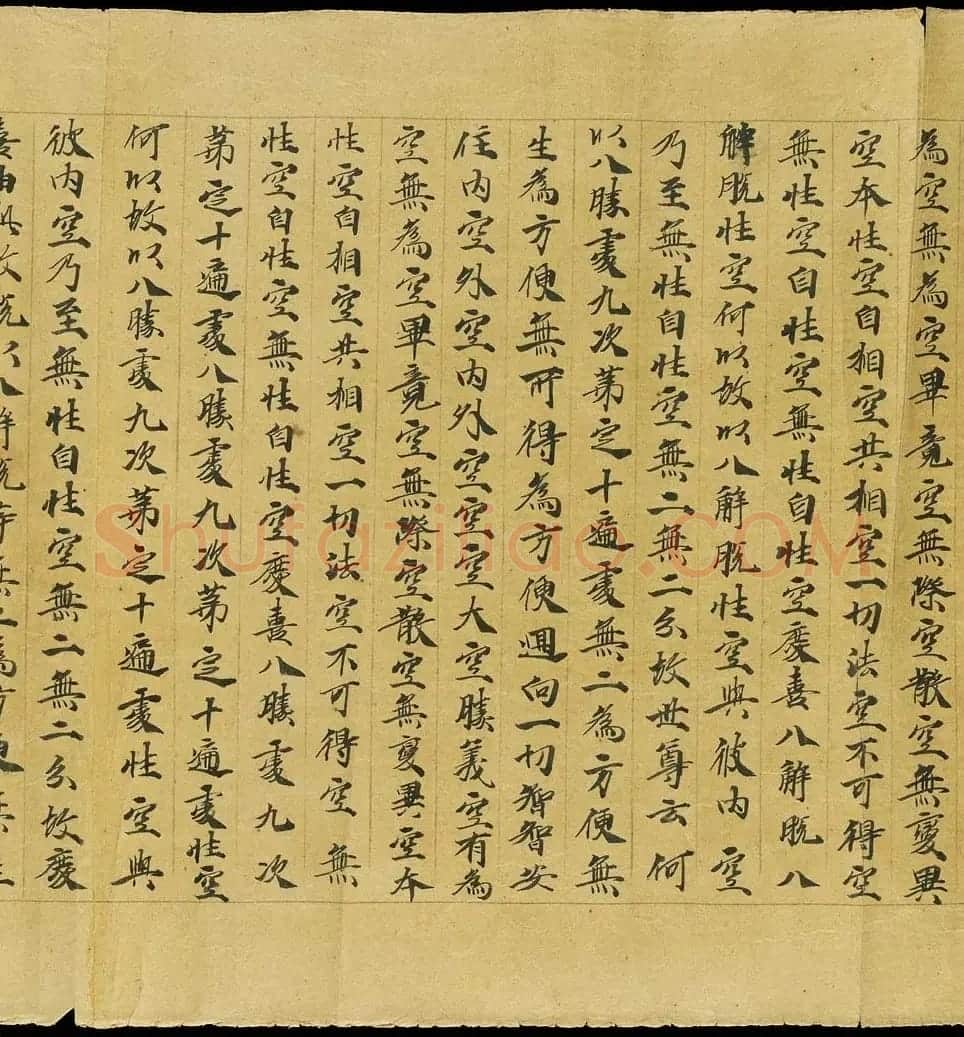 為空無為空畢竟空無際空散空無變異
空本性空自相空共相空一切法空不可得空
無性空自性空無性自性空慶喜八解脫八
解脫性空何以故以八解脫性空與彼內空
乃至無性自性空無二無二分故世尊云何
以八勝處九次第定十遍處無二為方便無
生為方便無所得為方便迴向一切智智安
住內空外空內外空空空大空勝義空有為
空無為空畢竟空無際空散空無變異空本
性空自相空共相空一切法空不可得空無
性空自性空無性自性空慶喜八勝處九次
第定十遍處八勝處九次第定十遍處性空
何以故以八勝處九次第定十遍處性空與
彼內空乃至無性自性空無二無二分故慶
喜由此故說以八解脫等無二為方便無生
Shufaziliao.COM